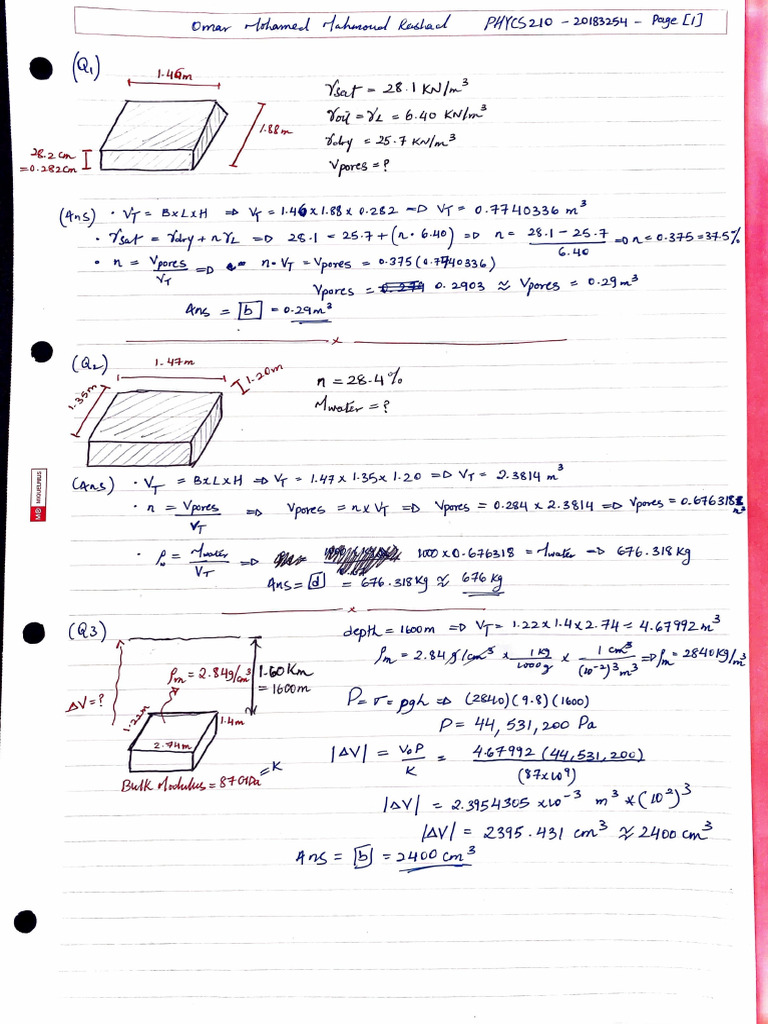 Omar Mohamed Mahmoud Rashad PHYCS210 - 20183254 - Page [1]
(Q1)
1.46m
1.88m
28.2 cm
= 0.282cm
γsat = 28.1 KN/m³
γoil = γL = 6.40 KN/m³
γdry = 25.7 KN/m³
Vpores = ?
(Ans) • VT = B×L×H ⇒ VT = 1.46 × 1.88 × 0.282 ⇒ VT = 0.7740336 m³
• γsat = γdry + nγL ⇒ 28.1 = 25.7 + (n · 6.40) ⇒ n = (28.1 - 25.7)/6.40 ⇒ n = 0.375 = 37.5%
• n = Vpores/VT ⇒ n · VT = Vpores = 0.375 (0.7740336)
Vpores = 0.2903 ≈ Vpores = 0.29m³
Ans = [b] = 0.29m³
x
(Q2)
1.47m
1.20m
1.35m
n = 28.4%
Mwater = ?
(Ans) • VT = B×L×H ⇒ VT = 1.47 × 1.35 × 1.20 ⇒ VT = 2.3814 m³
• n = Vpores/VT ⇒ Vpores = n × VT ⇒ Vpores = 0.284 × 2.3814 ⇒ Vpores = 0.676318 m³
• ρw = Mwater/VT ⇒ 1000 × 0.676318 = Mwater ⇒ 676.318 Kg
Ans = [d] = 676.318 Kg ≈ 676 kg
x
(Q3)
ΔV = ?
ρm = 2.84g/cm³
1.60Km
= 1600m
1.22m
1.4m
2.74m
Bulk Modulus = 87GPa = K
depth = 1600m ⇒ VT = 1.22 × 1.4 × 2.74 = 4.67992 m³
ρm = 2.84 g/cm³ × 1Kg/1000g × 1 cm³/(10⁻²)³m³ ⇒ ρm = 2840Kg/m³
P = σ = ρgh ⇒ (2840)(9.8)(1600)
P = 44,531,200 Pa
|ΔV| = V₀P/K = 4.67992 (44,531,200)/(87×10⁹)
|ΔV| = 2.3954305 ×10⁻³ m³ × (10²)³
|ΔV| = 2395.431 cm³ ≈ 2400 cm³
Ans = [b] = 2400 cm³
MIQUELRIUS